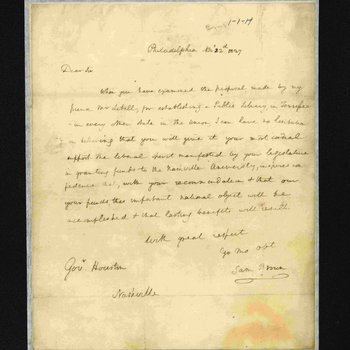 1-1-14
Philadelphia 22d 1827
Dear Sir
When you have examined the proposal made by my
friend Mr for establishing a Public Library in
in every other State in the Union I can have no
in believing that you will give it your most cordial
support the liberal spirit manifested by your legislature
in granting funds to the Nashville University, inspires con
fidence that, with your recommendation & that our
your friends this important national object will be
accomplished & that lasting benefits will result
With great respect
Yo mo obt
Govr Houston
Sam
Nashville